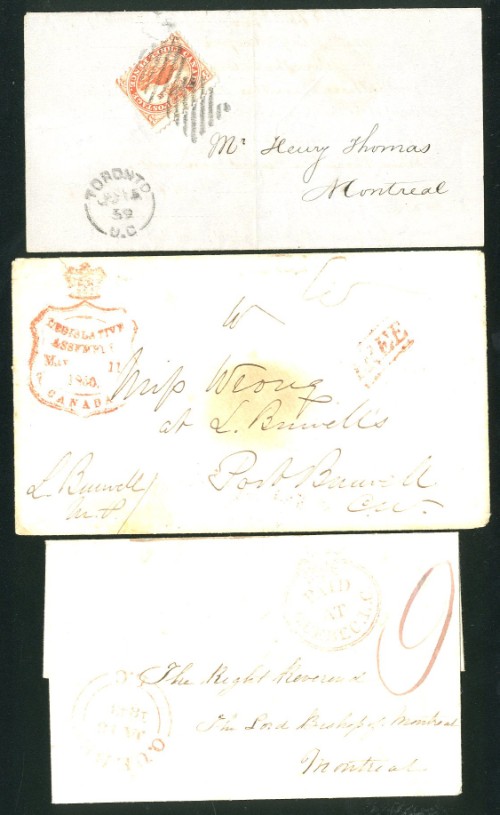 CANADA POSTAGE
Mr Henry Thomas
Montreal
TORONTO
59
U.C
LEGISLATIVE
ASSEMBLY
May 11
1860.
CANADA
FREE
Miss Wrong
at L. Burwell's
Port Burwell
C.W.
L. Burwell
M.P
PAID
AT
QUEBEC L.C
9
The Right Reverend
The Lord Bishop of Montreal
Montreal